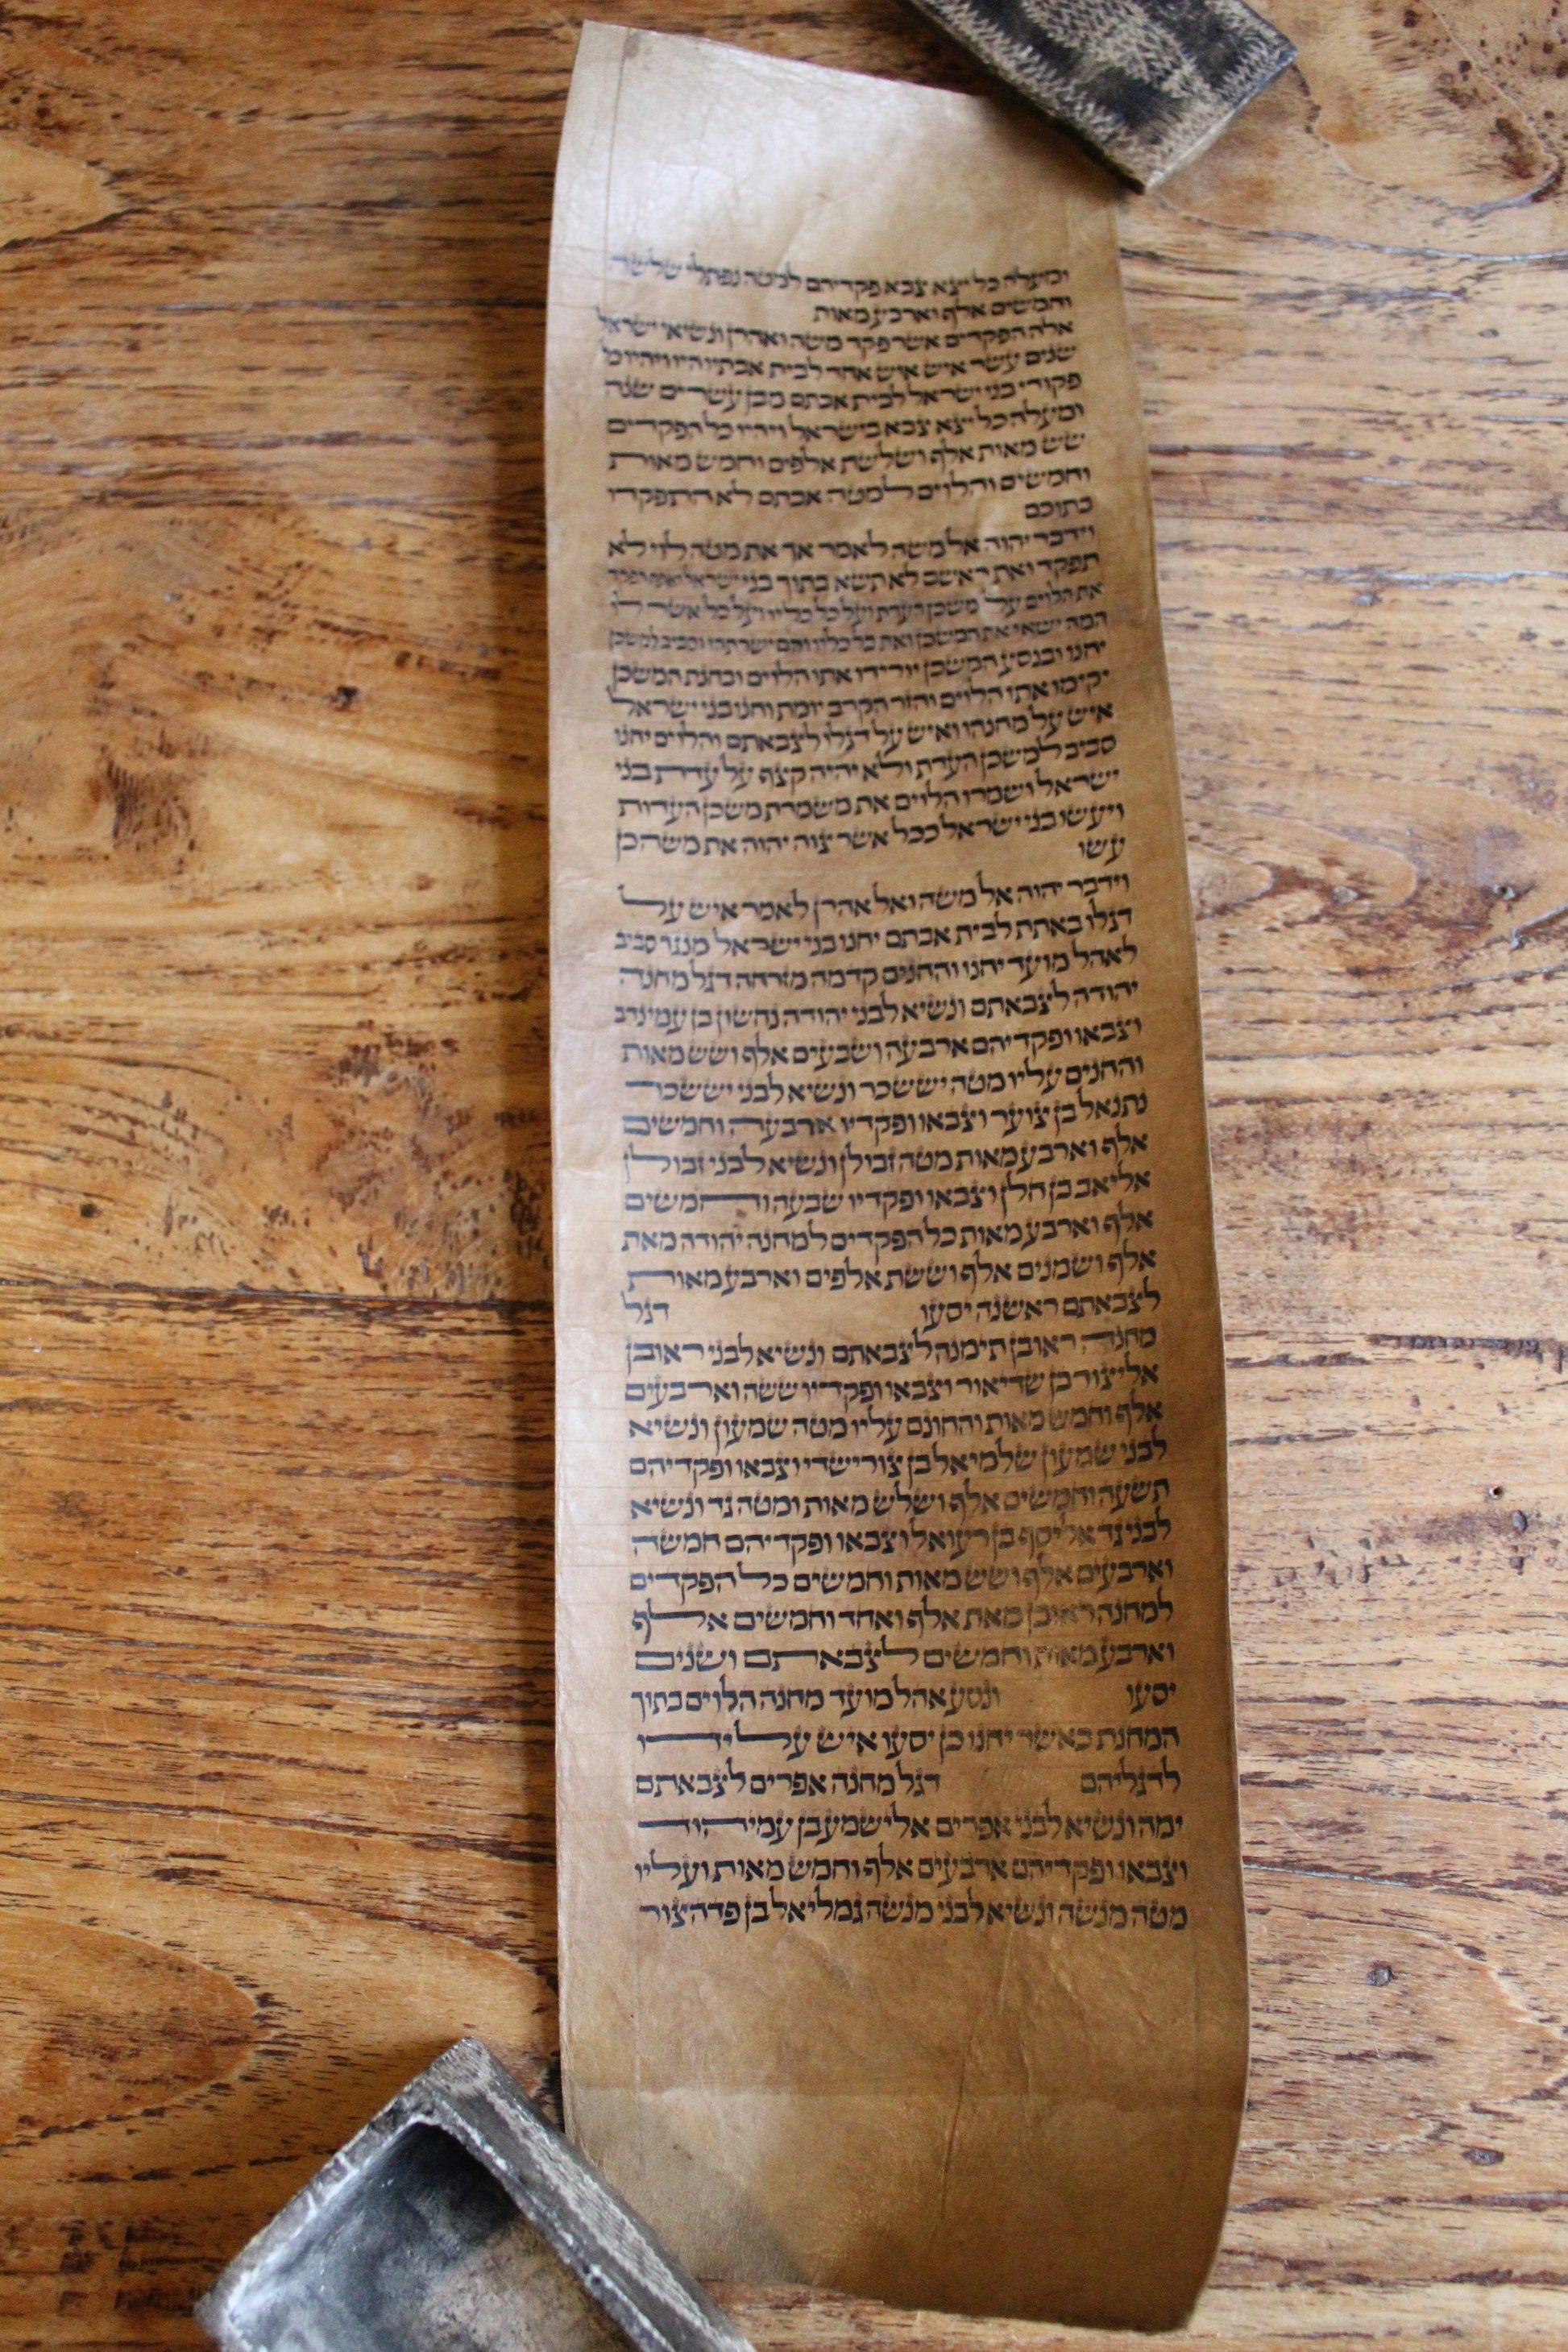 ומעלה כל יצא צבא פקדיהם למטה נפתלי שלשה
וחמשים אלף וארבע מאות
אלה הפקדים אשר פקד משה ואהרן ונשיאי ישראל
שנים עשר איש איש אחד לבית אבתיו היו ויהיו כל
פקודי בני ישראל לבית אבתם מבן עשרים שנה
ומעלה כל יצא צבא בישראל ויהיו כל הפקדים
שש מאות אלף ושלשת אלפים וחמש מאות
וחמשים והלוים למטה אבתם לא התפקדו
בתוכם
וידבר יהוה אל משה לאמר אך את מטה לוי לא
תפקד ואת ראשם לא תשא בתוך בני ישראל ואתה הפקד
את הלוים על משכן העדת ועל כל כליו ועל כל אשר לו
המה ישאו את המשכן ואת כל כליו והם ישרתהו וסביב למשכן
יחנו ובנסע המשכן יורידו אתו הלוים ובחנת המשכן
יקימו אתו הלוים והזר הקרב יומת וחנו בני ישראל
איש על מחנהו ואיש על דגלו לצבאתם והלוים יחנו
סביב למשכן העדת ולא יהיה קצף על עדת בני
ישראל ושמרו הלוים את משמרת משכן העדות
ויעשו בני ישראל ככל אשר צוה יהוה את משה כן
עשו
וידבר יהוה אל משה ואל אהרן לאמר איש על
דגלו באתת לבית אבתם יחנו בני ישראל מנגד סביב
לאהל מועד יחנו והחנים קדמה מזרחה דגל מחנה
יהודה לצבאתם ונשיא לבני יהודה נחשון בן עמינדב
וצבאו ופקדיהם ארבעה ושבעים אלף ושש מאות
והחנים עליו מטה יששכר ונשיא לבני יששכר
נתנאל בן צוער וצבאו ופקדיו ארבעה וחמשים
אלף וארבע מאות מטה זבולן ונשיא לבני זבולן
אליאב בן חלן וצבאו ופקדיו שבעה וחמשים
אלף וארבע מאות כל הפקדים למחנה יהודה מאת
אלף ושמנים אלף וששת אלפים וארבע מאות
לצבאתם ראשנה יסעו דגל
מחנה ראובן תימנה לצבאתם ונשיא לבני ראובן
אליצור בן שדיאור וצבאו ופקדיו ששה וארבעים
אלף וחמש מאות והחונם עליו מטה שמעון ונשיא
לבני שמעון שלמיאל בן צורישדי וצבאו ופקדיהם
תשעה וחמשים אלף ושלש מאות ומטה גד ונשיא
לבני גד אליסף בן רעואל וצבאו ופקדיהם חמשה
וארבעים אלף ושש מאות וחמשים כל הפקדים
למחנה ראובן מאת אלף ואחד וחמשים אלף
וארבע מאות וחמשים לצבאתם ושנים
יסעו ונסע אהל מועד מחנה הלוים בתוך
המחנת כאשר יחנו כן יסעו איש על ידו
לדגליהם דגל מחנה אפרים לצבאתם
ימה ונשיא לבני אפרים אלישמע בן עמיהוד
וצבאו ופקדיהם ארבעים אלף וחמש מאות ועליו
מטה מנשה ונשיא לבני מנשה גמליאל בן פדהצור